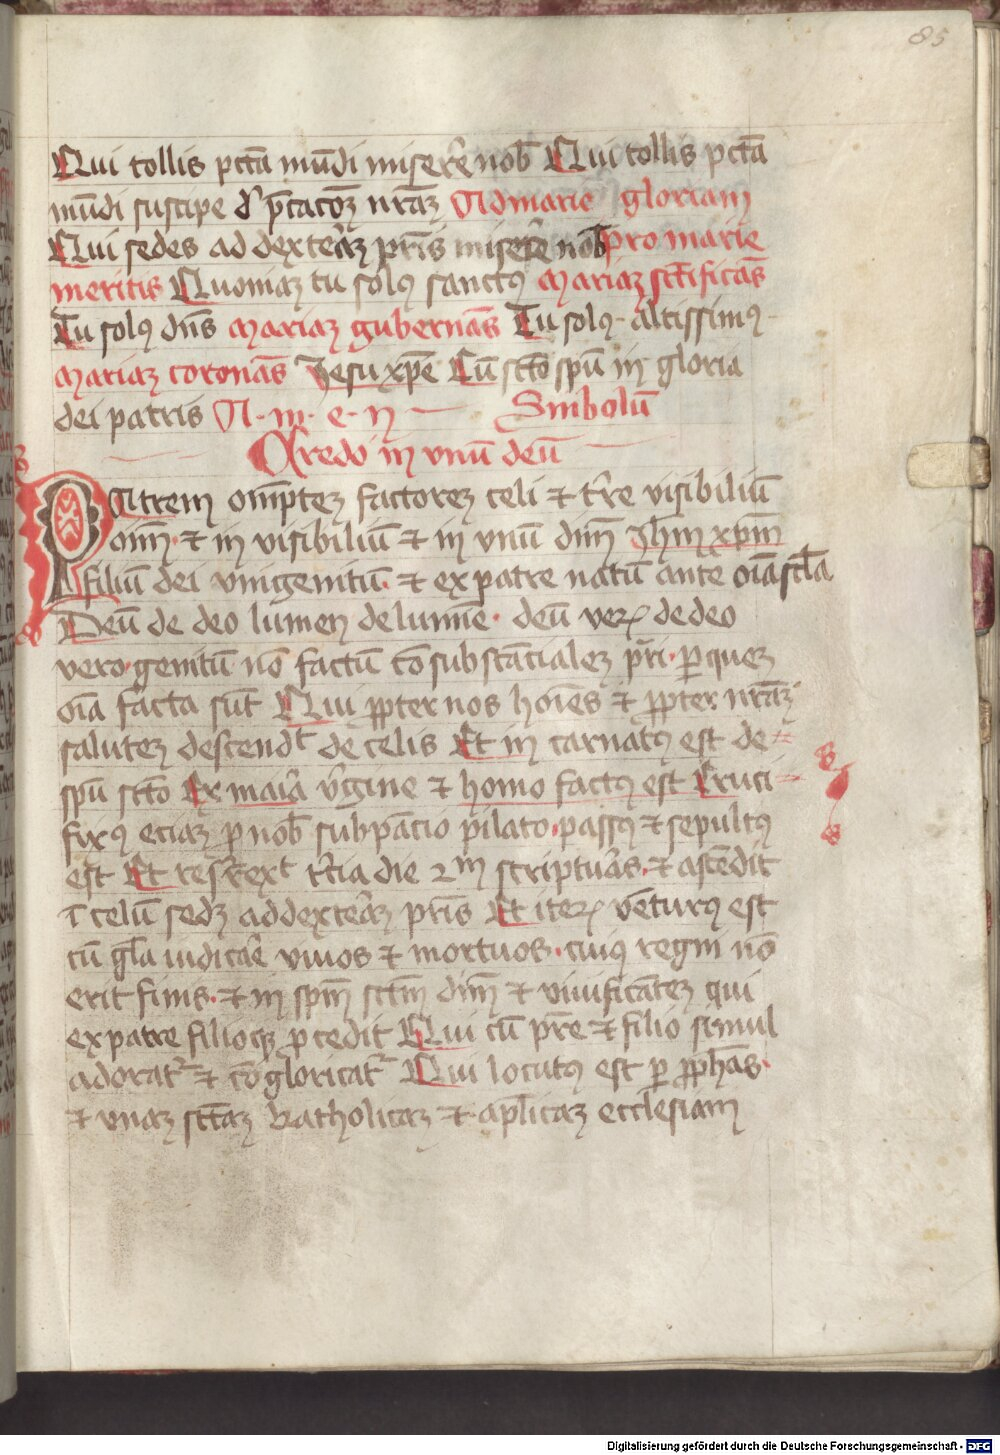 85
Qui tollis pctā mūdi miserēre nob̄ Qui tollis pctā
mūdi suscipe dep̄catōꝫ nr̄aꝫ Ad marie gloriam
Qui sedes ad dexterāꝫ pr̄is miserēre nob̄ pro marie
meritis Quoniaꝫ tu solꝰ sanctꝰ Mariaꝫ sct̄ificās
Tu solꝰ dn̄s Mariaꝫ gubernās Tu solꝰ altissimꝰ
Mariaꝫ coronās Jesu xp̄e Cū sctō spū in gloria
dei patris A·m·e·n Simbolū
Credo in vnū deū
PAtrem omp̄teꝫ factoreꝫ celi ⁊ tr̄re visibiliū
oīm ⁊ in visibiliū ⁊ in vnū dūm Jhm̄ xpm̄
filiū dei vnigenitū ⁊ ex patre natū ante oīa scl̄a
Deū de deo lumen de lumīe deū veꝝ de deo
vero genitū nō factū cōsubstācialeꝫ pr̄i ꝑ queꝫ
oīa facta sūt Qui ꝓpter nos hoīes ⁊ ꝓpter nr̄aꝫ
saluteꝫ descendt de celis Et in carnatꝰ est de
spū sctō Ex maīa v̄gine ⁊ homo factꝰ est Cruci
fixꝰ eciaꝫ ꝓ nob̄ sub pōncio pilato passꝰ ⁊ sepultꝰ
est Et resr̄rext tr̄cia die 2m scriptuās ⁊ ascēdit
ī celū sedꝫ ad dexterāꝫ pr̄is Et iteꝝ vēturꝰ est
cū gl̄a iudicāe viuos ⁊ mortuos cuiꝰ regni nō
erit finis ⁊ in spm̄ sctm̄ dūm ⁊ viuificāteꝫ qui
ex patre filioqꝫ ꝓcedit Qui cū pr̄e ⁊ filio simul
adorat᷑ ⁊ cōgloricat᷑ Qui locutꝰ est ꝑ ꝓphās
⁊ vnaꝫ sctāꝫ katholicaꝫ ⁊ apl̄icaꝫ ecclesiam
Digitalisierung gefördert durch die Deutsche Forschungsgemeinschaft - DFG